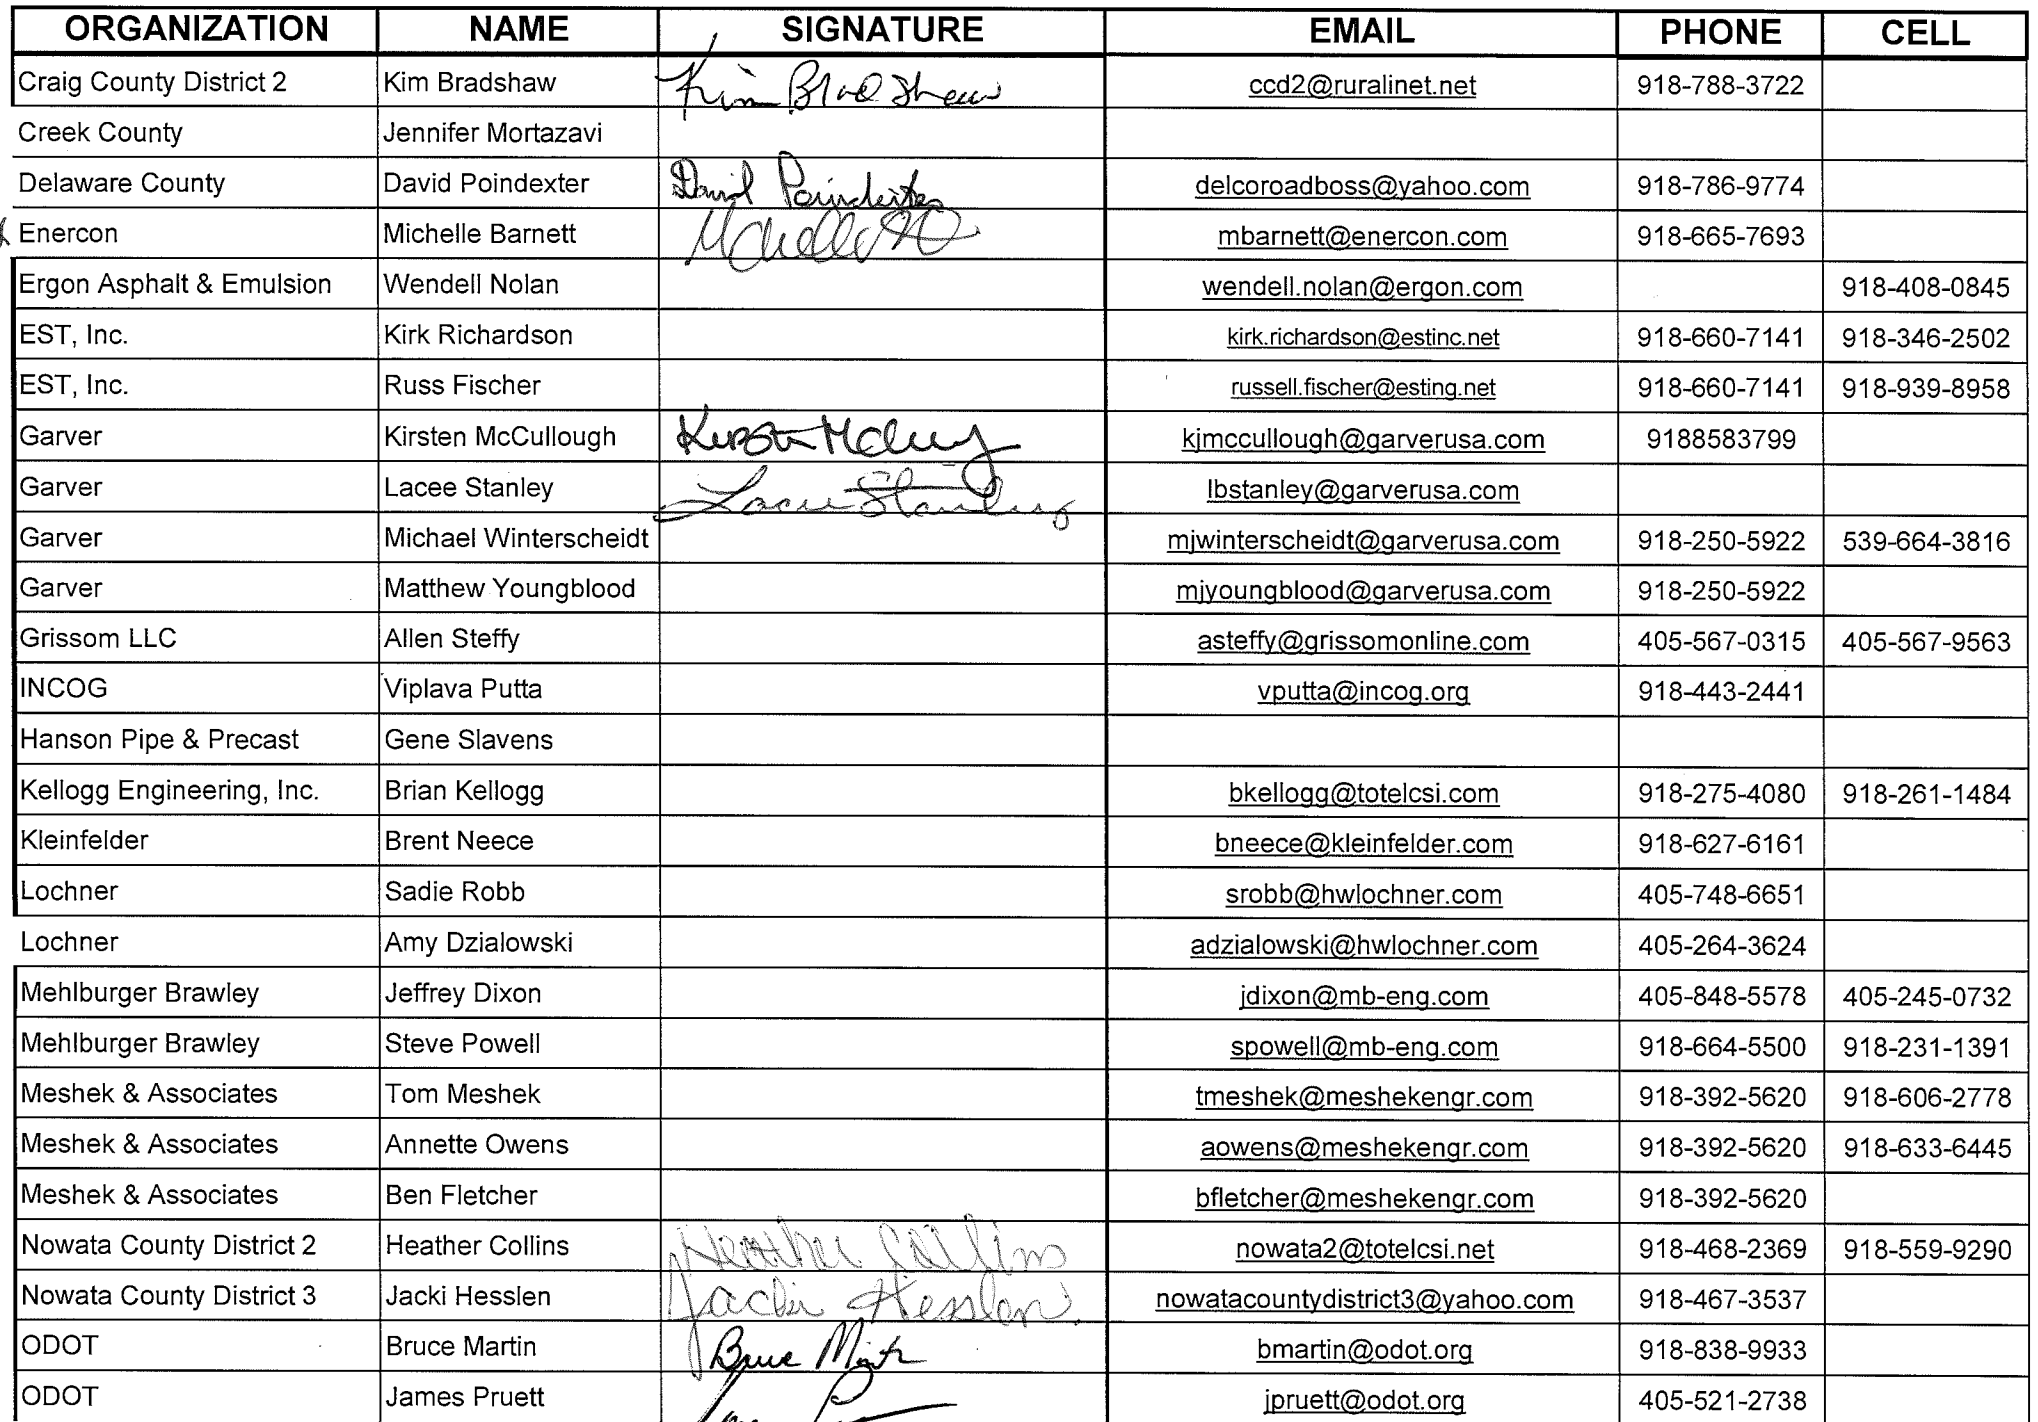 ORGANIZATION NAME SIGNATURE EMAIL PHONE CELL
Craig County District 2 Kim Bradshaw Kim Bradshaw ccd2@ruralinet.net 918-788-3722
Creek County Jennifer Mortazavi
Delaware County David Poindexter David Poindexter delcoroadboss@yahoo.com 918-786-9774
Enercon Michelle Barnett Michelle mbarnett@enercon.com 918-665-7693
Ergon Asphalt & Emulsion Wendell Nolan wendell.nolan@ergon.com 918-408-0845
EST, Inc. Kirk Richardson kirk.richardson@estinc.net 918-660-7141 918-346-2502
EST, Inc. Russ Fischer russell.fischer@esting.net 918-660-7141 918-939-8958
Garver Kirsten McCullough kjmccullough@garverusa.com 9188583799
Garver Lacee Stanley Lacee Stanley lbstanley@garverusa.com
Garver Michael Winterscheidt mjwinterscheidt@garverusa.com 918-250-5922 539-664-3816
Garver Matthew Youngblood mjyoungblood@garverusa.com 918-250-5922
Grissom LLC Allen Steffy asteffy@grissomonline.com 405-567-0315 405-567-9563
INCOG Viplava Putta vputta@incog.org 918-443-2441
Hanson Pipe & Precast Gene Slavens
Kellogg Engineering, Inc. Brian Kellogg bkellogg@totelcsi.com 918-275-4080 918-261-1484
Kleinfelder Brent Neece bneece@kleinfelder.com 918-627-6161
Lochner Sadie Robb srobb@hwlochner.com 405-748-6651
Lochner Amy Dzialowski adzialowski@hwlochner.com 405-264-3624
Mehlburger Brawley Jeffrey Dixon jdixon@mb-eng.com 405-848-5578 405-245-0732
Mehlburger Brawley Steve Powell spowell@mb-eng.com 918-664-5500 918-231-1391
Meshek & Associates Tom Meshek tmeshek@meshekengr.com 918-392-5620 918-606-2778
Meshek & Associates Annette Owens aowens@meshekengr.com 918-392-5620 918-633-6445
Meshek & Associates Ben Fletcher bfletcher@meshekengr.com 918-392-5620
Nowata County District 2 Heather Collins Heather Collins nowata2@totelcsi.net 918-468-2369 918-559-9290
Nowata County District 3 Jacki Hesslen Jacki Hesslen nowatacountydistrict3@yahoo.com 918-467-3537
ODOT Bruce Martin Bruce Martin bmartin@odot.org 918-838-9933
ODOT James Pruett jpruett@odot.org 405-521-2738